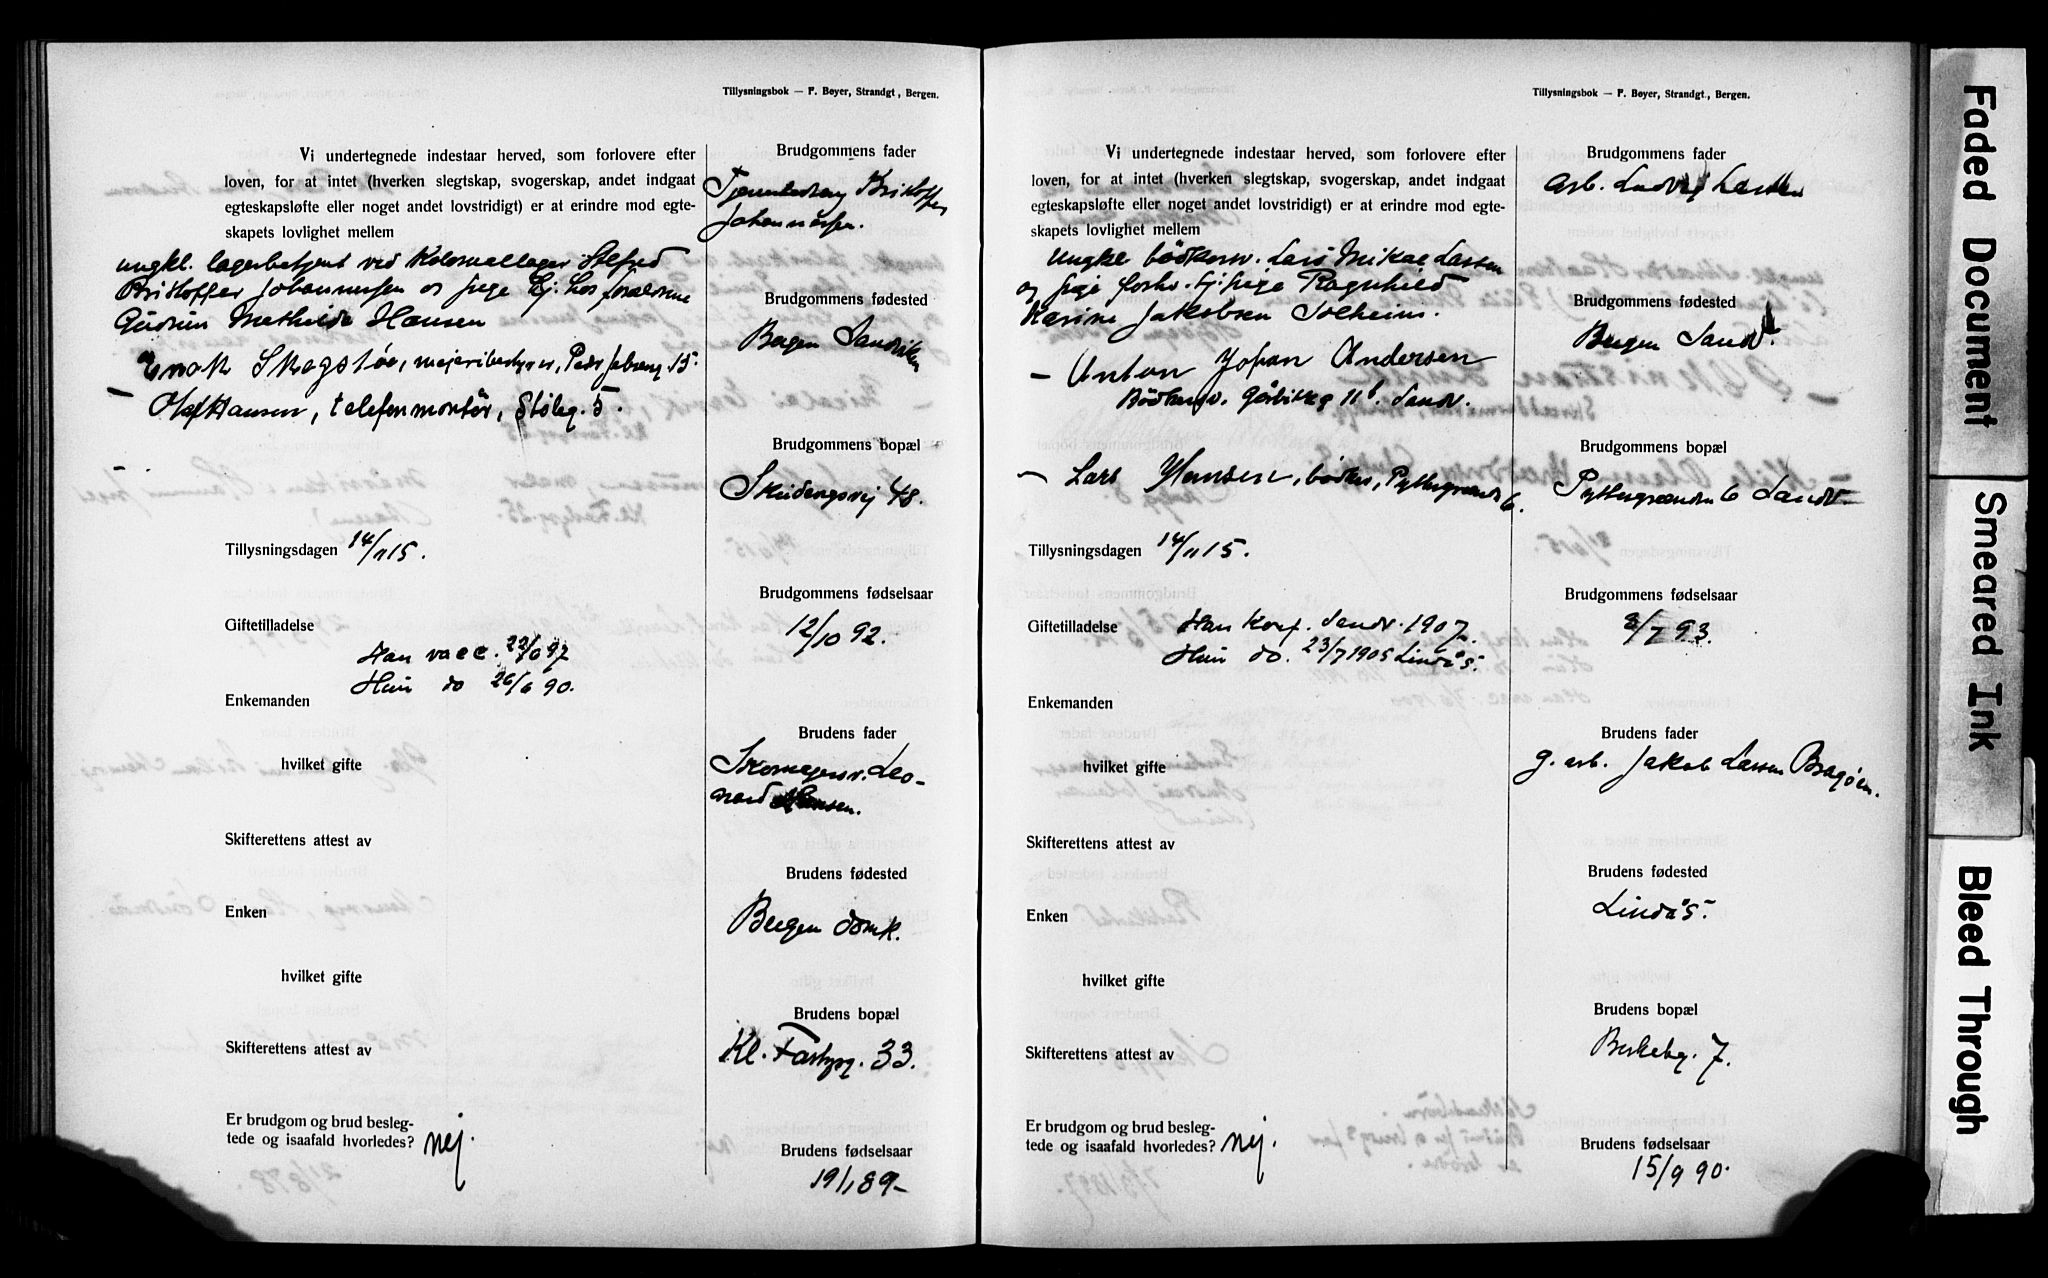 Tillysningsbok — F. Bøyer, Strandgt, Bergen.
Vi undertegnede indestaar herved, som forlovere efter
loven, for at intet (hverken slegtskap, svogerskap, andet indgaat
egteskapsløfte eller noget andet lovstridigt) er at erindre mod egte-
skapets lovlighet mellem
ungkl. lagerbetjent ved Koloniallager
Johannesen og pige hj. hos forældrene
Gudrun Mathilde Hansen
Enok Skagstøe, meieribestyrer, 15.
— Hansen, telefonmontør, Støleg. 5.
Tillysningsdagen 14/11 15.
Giftetilladelse
Han vacc. 22/6 97
Hun do 26/6 90.
Enkemanden
hvilket gifte
Skifterettens attest av
Enken
hvilket gifte
Skifterettens attest av
Er brudgom og brud besleg-
tede og isaafald hvorledes? nej.
Brudgommens fader
Kristoffer
Johannesen.
Brudgommens fødested
Bergen Sandviken
Brudgommens bopæl
Skudengsvej 48.
Brudgommens fødselsaar
12/10 92.
Brudens fader
Skomagersv. Leo-
nard Hansen.
Brudens fødested
Bergen domk.
Brudens bopæl
Kl. 33.
Brudens fødselsaar
19/1 89-
Tillysningsbok — F. Bøyer, Strandgt., Bergen.
Vi undertegnede indestaar herved, som forlovere efter
loven, for at intet (hverken slegtskap, svogerskap, andet indgaat
egteskapsløfte eller noget andet lovstridigt) er at erindre mod egte-
skapets lovlighet mellem
Ungkl bødkersv. Lars Mikal Larsen
og pige forhv. tj.pige Ragnhild
Karine Jakobsen Solheim.
— Anton Johan Andersen
Bødkersv. 11b. Sandv.
— Lars Hansen, bødker, Pyttergrænden 6.
Tillysningsdagen 14/11 15.
Giftetilladelse
Han konf. Sandv. 1907.
Hun do. 23/7 1905 Lindås.
Enkemanden
hvilket gifte
Skifterettens attest av
Enken
hvilket gifte
Skifterettens attest av
Er brudgom og brud besleg-
tede og isaafald hvorledes? nej.
Brudgommens fader
Arb. Ludvig Larsen
Brudgommens fødested
Bergen Sandv.
Brudgommens bopæl
Pyttergrænden 6 Sandv.
Brudgommens fødselsaar
8/7 93.
Brudens fader
g. arb. Jakob Larsen Bragøen.
Brudens fødested
Lindås.
Brudens bopæl
Birkebg. 7.
Brudens fødselsaar
15/9 90.
Faded Document
Smeared Ink
Bleed Through